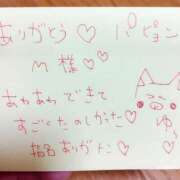 ありがとう♡ パピヨン
M様♡♡
あわあわできて
すごくたのしかった♡
指名ありがとー♡
ゆう